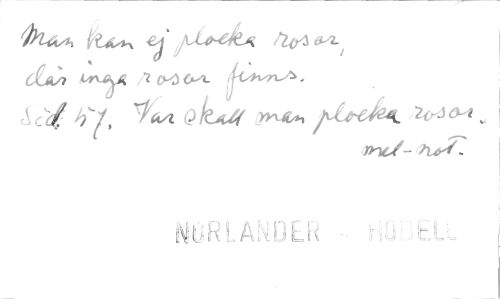 Man kan ej plocka rosor,
där inga rosor finns.
Sid. 57. Var skall man plocka rosor.
mel-not.
NORLANDER - HODELL